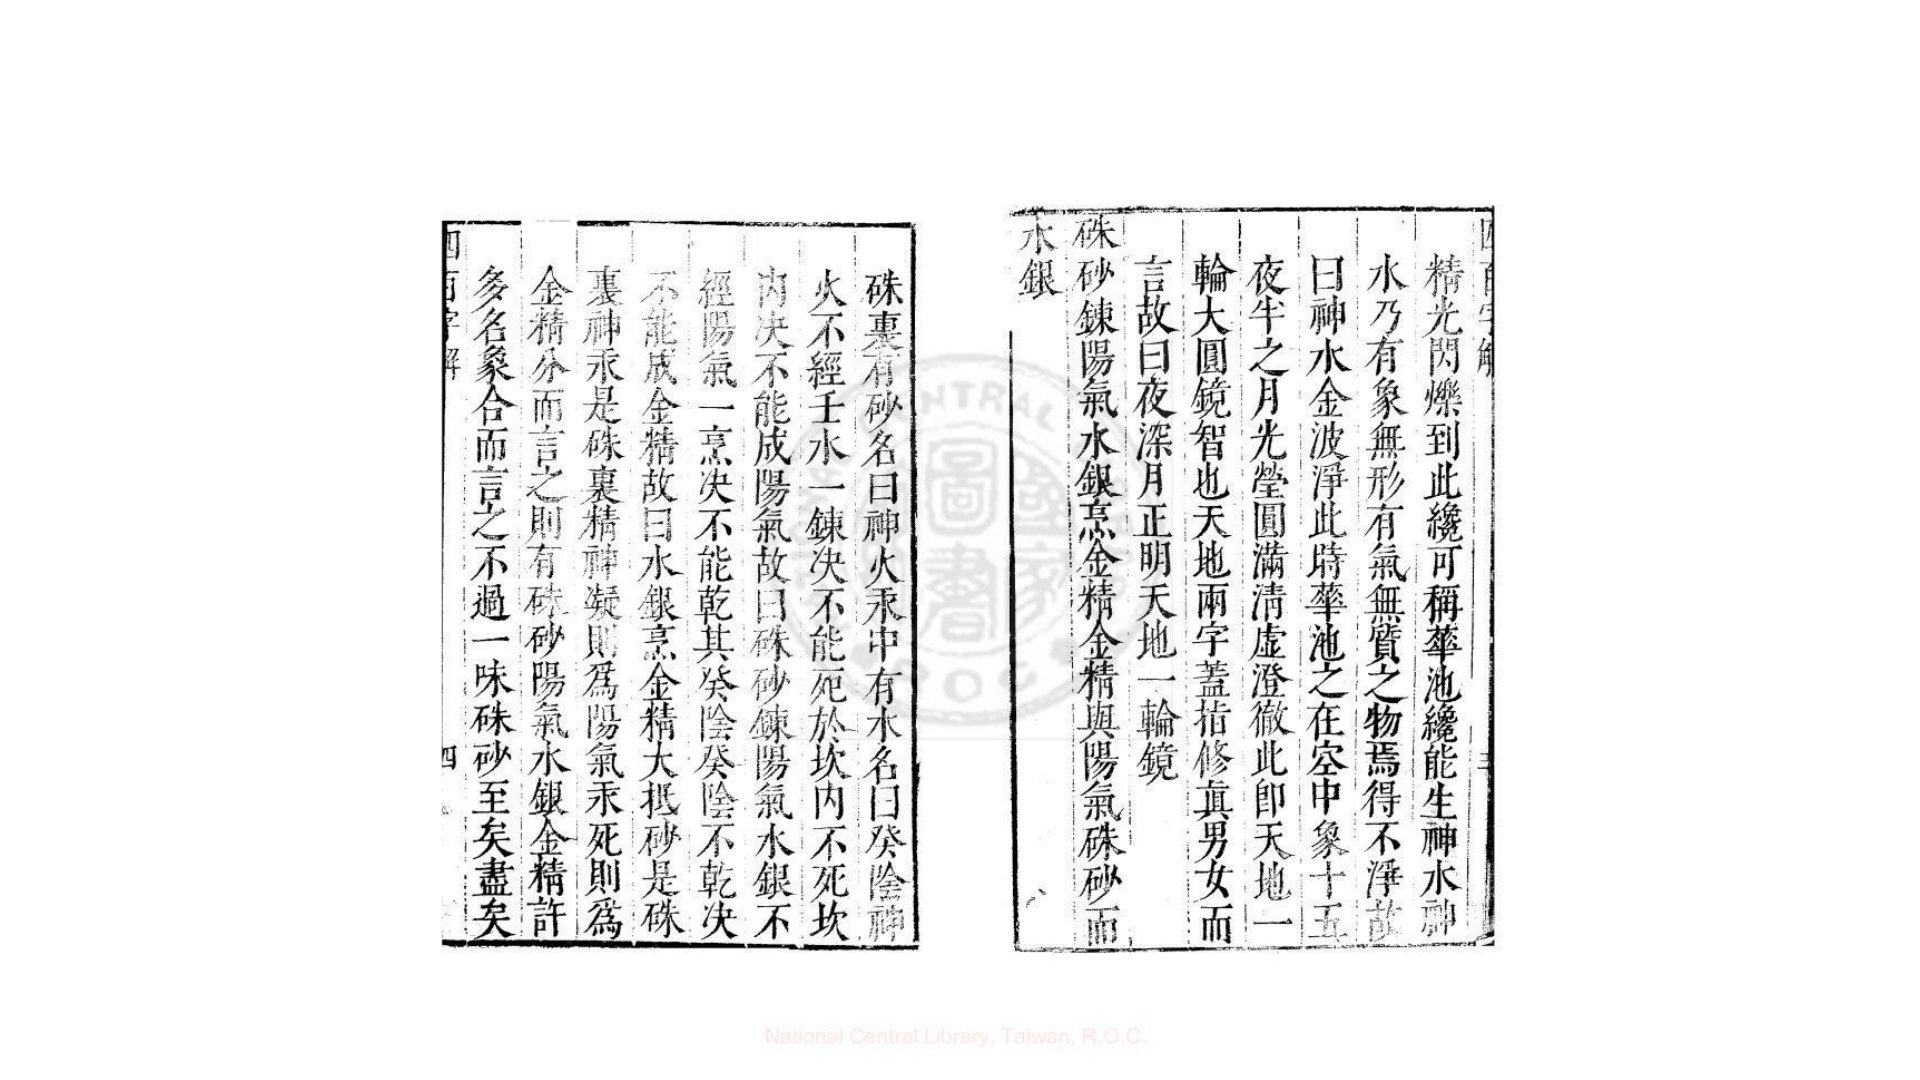 精光閃爍到此纔可稱華池纔能生神水神
水乃有象無形有氣無質之物焉得不淨故
曰神水金波淨此時華池之在空中象十五
夜半之月光瑩圓滿清虛澄徹此卽天地一
輪大圓鏡智也天地兩字蓋指修眞男女而
言故曰夜深月正明天地一輪鏡
硃砂鍊陽氣水銀烹金精金精與陽氣硃砂而
水銀
硃裏有砂名曰神火汞中有水名曰癸陰神
火不經壬水一鍊决不能死於坎内不死坎
内决不能成陽氣故曰硃砂鍊陽氣水銀不
經陽氣一烹决不能乾其癸陰癸陰不乾决
不能成金精故曰水銀烹金精大抵砂是硃
裏神汞是硃裏精神凝則爲陽氣汞死則爲
金精分而言之則有硃砂陽氣水銀金精許
多名象合而言之不過一味硃砂至矣盡矣
四百字解
四
National Central Library, Taiwan, R.O.C.